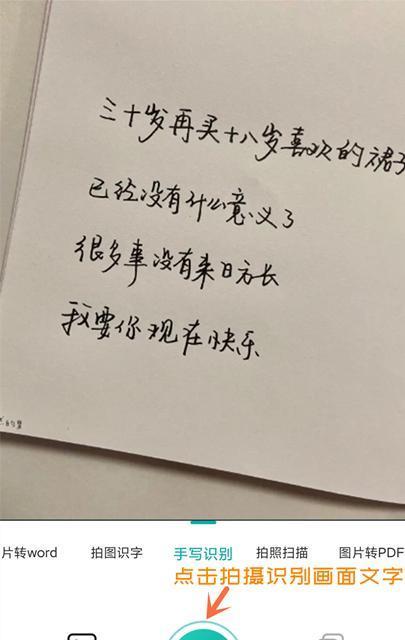 三十岁再买十八岁喜欢的裙子
已经没有什么意义了
很多事没有来日方长
我要你现在快乐
片转word 拍图识字 手写识别 拍照扫描 图片转PDF
点击拍摄识别画面文字